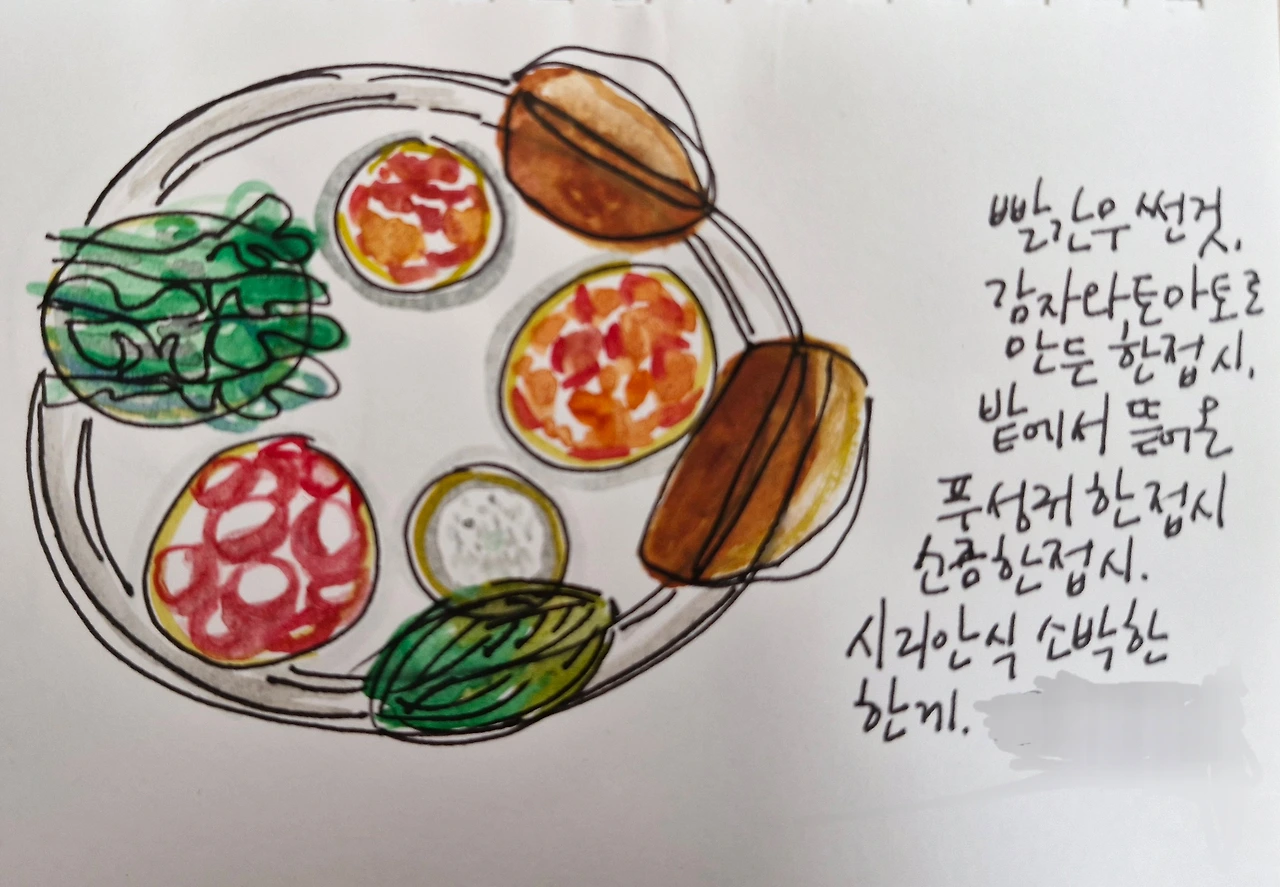 빨간무 썬것,
감자와 토마토로
만든 한접시,
밭에서 뜯어온
푸성귀 한접시
소금한접시.
시리안식 소박한
한끼.